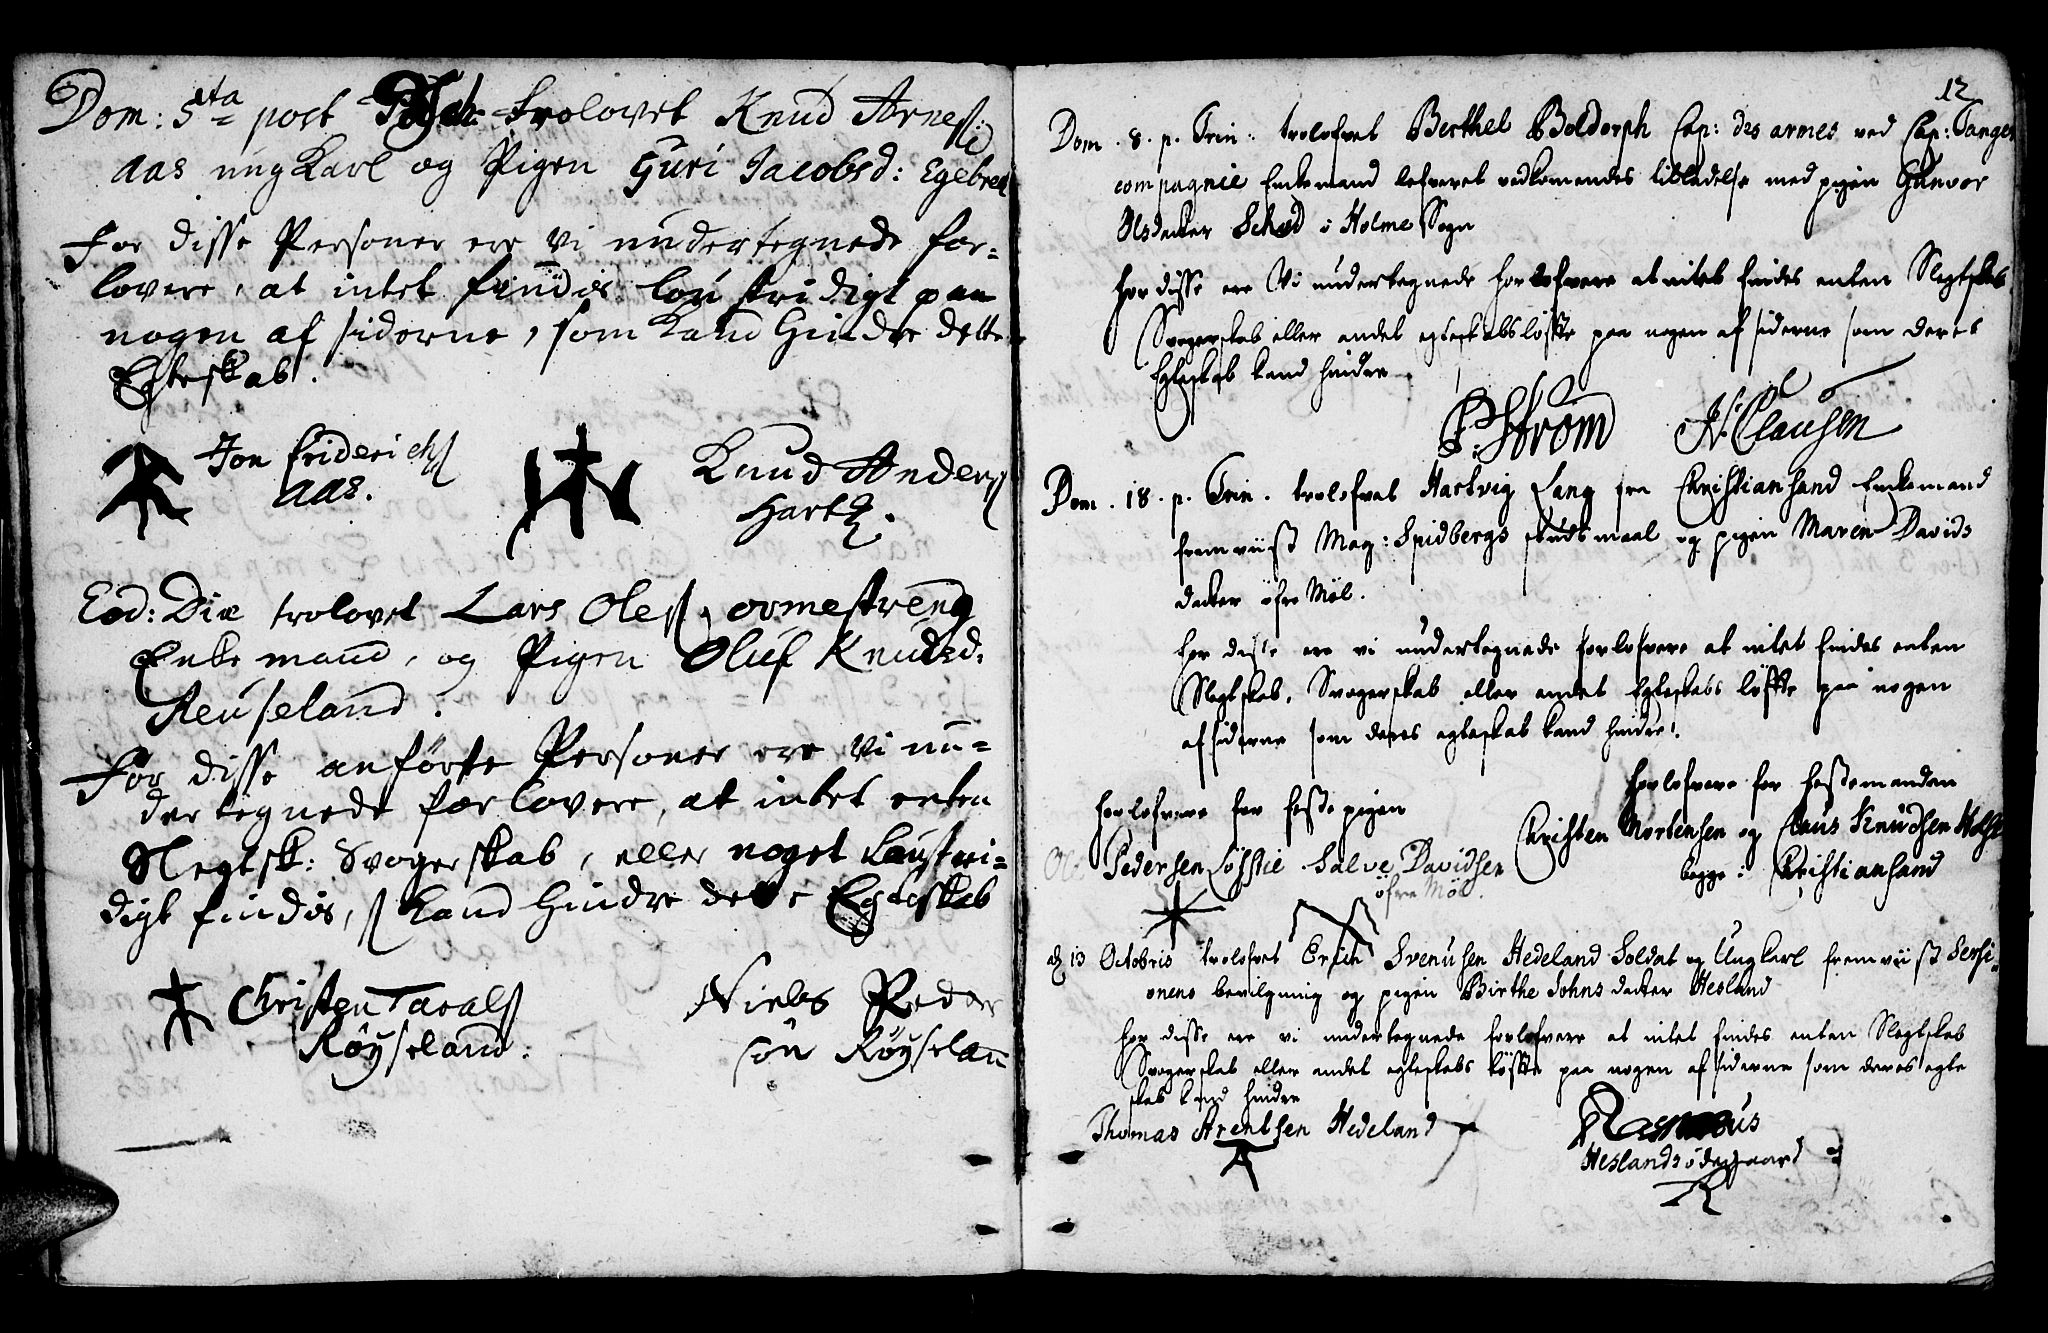 Dom: 5ta post Pasch: trolovet Knud Arness:
Aas ung Karl og Pigen Guri Jacobsd: Egebrek
For disse Personer ere vi undertegnede for=
lovere, at intet findis lou stridigt paa
nogen af siderne, som kand hindre dette
Egteskab.
Jon Friderichs
Aas.
Knud Anders
Hart
Eod: Die trolovet Lars Oless, ormestrend
Enkemand, og Pigen Oluf Knudsd:
Reuseland.
For disse anförte Personer ere vi un=
dertegnede forlovere, at intet enten
Slegtsk: Svogerskab, eller noget Laustri=
digt findis, s kand hindre dette Egteskab
Christen Taralss
Røyseland:
Niels Peder
søn Røyselan
12
Dom. 8. p. Trin: trolofvet Berthel Boldorph Cap: des armes ved Cap: Tanges
compagnie Enkemand lefveret vedkomendes tilladelse med pigen Gunvor
Olsdatter Schod i Holme Sogn
For disse ere Vi undertegnede forlofvere at intet findes enten Slegtskab
Svogerskab eller andet egteskabsløffte paa nogen af siderne som deres
Egteskab kand hindre.
P: Strøm N: Clausen
Dom. 18. p. Trin. trolofvet Hartvig Lang fra Christiansand Enkemand
fremviist Mag: Spidbergs skudsmaal og pigen Maren Davids
datter øfre Møl.
for disse ere vi undertegnede forlofvere at intet findes enten
Slegtskab, Svogerskab eller andet Egteskabs løffte paa nogen
af siderne som deres egteskab kand hindre.
Forlofvere for festemanden
Forlofvere for festepigen
Christen Mortensen og Claus Knudsen Holst
begge i Christiansand
Ole Pedersen Løsstie Salve Davidsen
øfre Møl.
d 13 Octobris trolofvet Erich Svenusen Hedeland Soldat og Ungkarl fremviist Sessi=
onens bevilgning og pigen Birthe Johnsdatter Hesland
for disse ere vi undertegnede forlofvere at intet findes enten Slegtskab
Svogerskab eller andet egteskabs løffte paa nogen af siderne som deres egte
skab kand hindre
Thomas Arentsen Hedeland
Rasmus
Heslands ødegaard
R